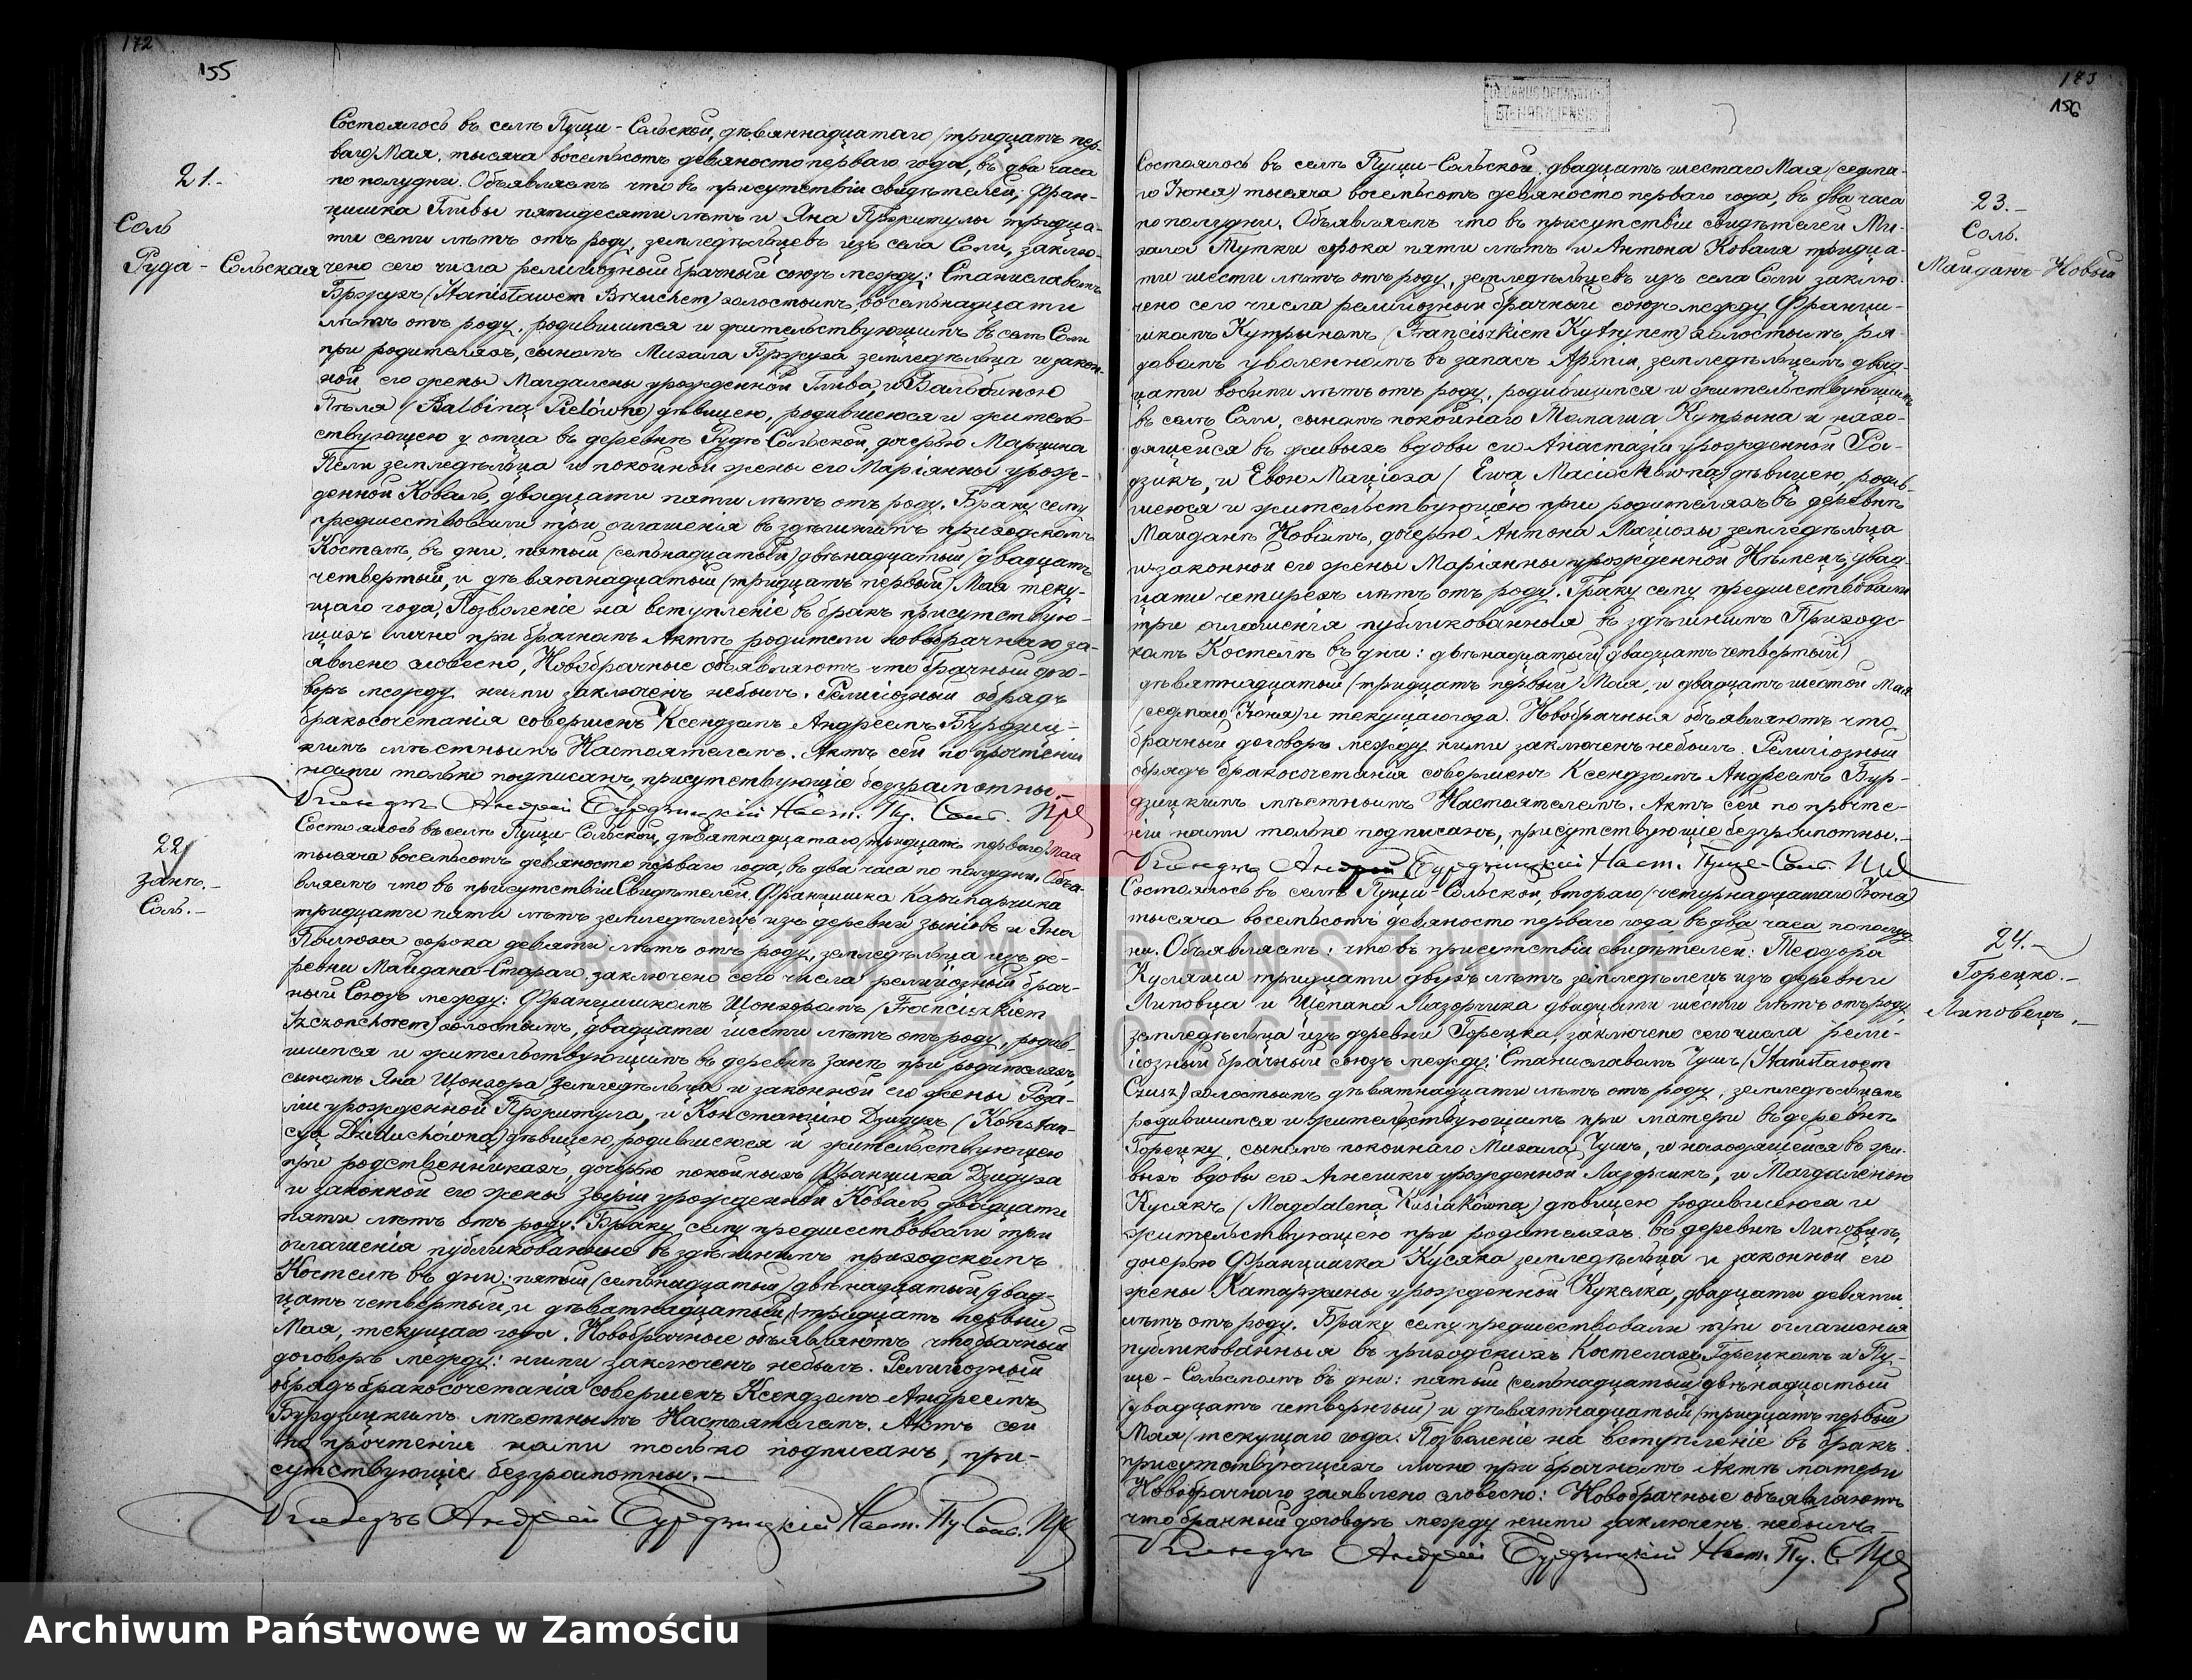 172
155
21.-
Соль
Руда - Сольская
Состоялось въ селѣ Пущи-Сольской, дѣвяннадцатаго (тридцать пер-
ваго) Мая, тысяча восемьсотъ девяносто перваго года, въ два часа
по полудни. Объявляемъ что въ присутствіи свидѣтелей, Фран-
цишка Гливы пятидесяти лѣтъ и Яна Пржитулы тридца-
ти семи лѣтъ отъ роду, земледѣльцевъ изъ села Соли, заклю-
чено сего числа религіозный брачный союзъ между: Станиславомъ
Бржухъ (Stanisławem Brzuchem) холостымъ, восемьнадцати
лѣтъ отъ роду, родившимся и жительствующимъ въ селѣ Соли
при родителяхъ, сыномъ Михала Бржуха земледѣльца и закон-
ной его жены Магдалены урожденной Глива, и Бальбиною
Пѣля (Balbiną Pielówną) дѣвицею, родившеюся и житель-
ствующею у отца въ деревнѣ Рудѣ Сольской, дочерью Марцина
Пели земледѣльца и покойной жены его Маріянны урож-
денной Коваль, двадцати пяти лѣтъ отъ роду. Браку сему
предшествовали три оглашенія въ здѣшнимъ приходскомъ
Костелѣ, въ дни, пятый (семьнадцатый) двѣнадцатый (двадцать
четвертый, и дѣвяннадцатый (тридцать первый) Мая теку-
щаго года, Позволеніе на вступленіе въ бракъ присутствую-
щихъ лично при брачномъ Актѣ родители новобрачнаго за-
явлено словесно, Новобрачные объявляютъ что брачный дого-
воръ между ними заключенъ небылъ. Религіозный обрядъ
бракосочетанія совершенъ Ксендзомъ Андреемъ Бурдзиц-
кимъ мѣстнымъ Настоятелемъ. Актъ сей по прочтеніи
нами только подписанъ, присутствующіе безграмотны.-
Ксендзъ Андрей Бурдзицкій Наст. Пу. Сол.
22
Занѣ.-
Соль.-
Состоялось въ селѣ Пущи-Сольской, дѣвятнадцатаго (тридцать перваго) Мая
тысяча восемьсотъ девяносто перваго года, въ два часа по полудни, Объя-
вляемъ что въ присутствіи Свидѣтелей, Францишка Карчмарчика
тридцати пяти лѣтъ земледѣлецъ изъ деревни и Яна
сорока девяти лѣтъ отъ роду, земледѣльца изъ де-
ревни Майдана-Стараго, заключено сего числа религіозный брач-
ный Союзъ между: Францишкомъ Щонхоромъ (Franciszkiem
Szczonchorem) холостымъ, двадцати шести лѣтъ отъ роду, родив-
шимся и жительствующимъ въ деревнѣ Занѣ при родителяхъ,
сыномъ Яна Щонхора земледѣльца и законной его жены Роза-
ліи урожденной Пржитула, и Констанцію Дзидухъ (Konstan-
cyą Dziduchówną) дѣвицею, родившеюся и жительствующею
при родственникахъ, дочерью покойныхъ Францишка Дзидуха
и законной его жены Зофіи урожденной Коваль, двадцати
пяти лѣтъ отъ роду. Браку сему предшествовали три
оглашенія публикованные въ здѣшнимъ приходскомъ
Костелѣ въ дни: пятый (семьнадцатый) двѣнадцатый (двад-
цать четвертый, и дѣвятнадцатый (тридцать первый
Мая, текущаго года. Новобрачные объявляютъ что брачный
договоръ между: ними заключенъ небылъ. Религіозный
обрядъ бракосочетанія совершенъ Ксендзомъ Андреемъ
Бурдзицкимъ мѣстнымъ Настоятелемъ. Актъ сей
по прочтеніи нами только подписанъ, при-
сутствующіе безграмотны.-
Ксендзъ Андрей Бурдзицкій Наст. Пу Сол.
173
156
DECANUS DECANATUS
BIŁGORAJENSIS
23.-
Соль.
Майданъ-Новый
Состоялось въ селѣ Пущи-Сольской, двадцать шестаго Мая (седма-
го Іюня) тысяча восемьсотъ девяносто перваго года, въ два часа
по полудни. Объявляемъ что въ присутствіи свидѣтелей Ми-
хала Мутки сорока пяти лѣтъ и Антона Коваля тридца-
ти шести лѣтъ отъ роду, земледѣльцевъ изъ села Соли заклю-
чено сего числа религіозный брачный союзъ между Франци-
шкомъ Кутрыномъ (Franciszkiem Kutrynem) холостымъ, ря-
довымъ уволеннымъ въ запасъ Арміи, земледѣльцемъ двад-
цати восьми лѣтъ отъ роду, родившимся и жительствующимъ
въ селѣ Соли, сыномъ покойнаго Томаша Кутрына и нахо-
дящейся въ живыхъ вдовы его Анастазіи урожденной Ра-
дзикъ, и Евою Маціоха (Ewą Maciochówną) дѣвицею, родив-
шеюся и жительствующею при родителяхъ въ деревнѣ
Майданѣ Новімъ, дочерью Антона Маціохы земледѣльца
и законной его жены Маріянны урожденной Нѣмецъ, двад-
цати четырехъ лѣтъ отъ роду. Браку сему предшествовали
три оглашенія публикованныя въ здѣшнимъ Приходс-
комъ Костелѣ въ дни: двѣнадцатый (двадцать четвертый)
дѣвятнадцатый (тридцать первый) Мая, и двадцать шестой Мая
(седмаго Іюня) и текущаго года. Новобрачныя объявляютъ что
брачный договоръ между ними заключенъ небылъ. Религіозный
обрядъ бракосочетанія совершенъ Ксендзомъ Андреемъ Бур-
дзицкимъ мѣстнымъ Настоятелемъ. Актъ сей по прочте-
ніи нами только подписанъ, присутствующіе безграмотны.-
Ксендзъ Андрей Бурдзицкій Наст. Пуще-Сол.
24.-
Горецко.-
Липовецъ.-
Состоялось въ селѣ Пущи-Сольской, втораго (четырнадцатаго Іюня)
тысяча восемьсотъ девяносто перваго года въ два часа по полуд-
ни. Объявляемъ, что въ присутствіи свидѣтелей: Теодора
Куляши тридцати двухъ лѣтъ земледѣлецъ изъ деревни
Липовца и Щепана Лазорчика двадцати шести лѣтъ отъ роду
земледѣльца изъ деревни Горецка, заключено сего числа рели-
гіозный брачный союзъ между: Станиславомъ Чушъ (Stanisławem
Czusz) холостымъ дѣвятнадцати лѣтъ отъ роду, земледѣльцемъ
родившимся и жительствующимъ при матери въ деревнѣ
Горецку, сыномъ покойнаго Михала Чушъ, и находящейся въ жи-
выхъ вдовы его Агнешки урожденной Лазорчикъ, и Магдаленою
Кусякъ (Magdaleną Kusiakówną) дѣвицею родившеюся и
жительствующею при родителяхъ въ деревнѣ Липовцѣ,
дочерью Францишка Кусяка земледѣльца и законной его
жены Катаржины урожденной Кукелка, двадцати девяти
лѣтъ отъ роду. Браку сему предшествовали три оглашенія
публикованныя въ приходскихъ Костелахъ Горецкомъ и Пу-
ще-Сольскомъ въ дни: пятый (семьнадцатый) двѣнадцатый
(двадцать четвертый) и дѣвятнадцатый (тридцать первый
Мая) текущаго года. Позволеніе на вступленіе въ бракъ
присутствующихъ лично при брачномъ Актѣ матери
Новобрачнаго заявлено словесно: Новобрачные объявляютъ
что брачный договоръ между ними заключенъ небылъ
Ксендзъ Андрей Бурдзицкій Наст. Пу. С.
ARCHIWUM PAŃSTWOWE
W ZAMOŚCIU
Archiwum Państwowe w Zamościu